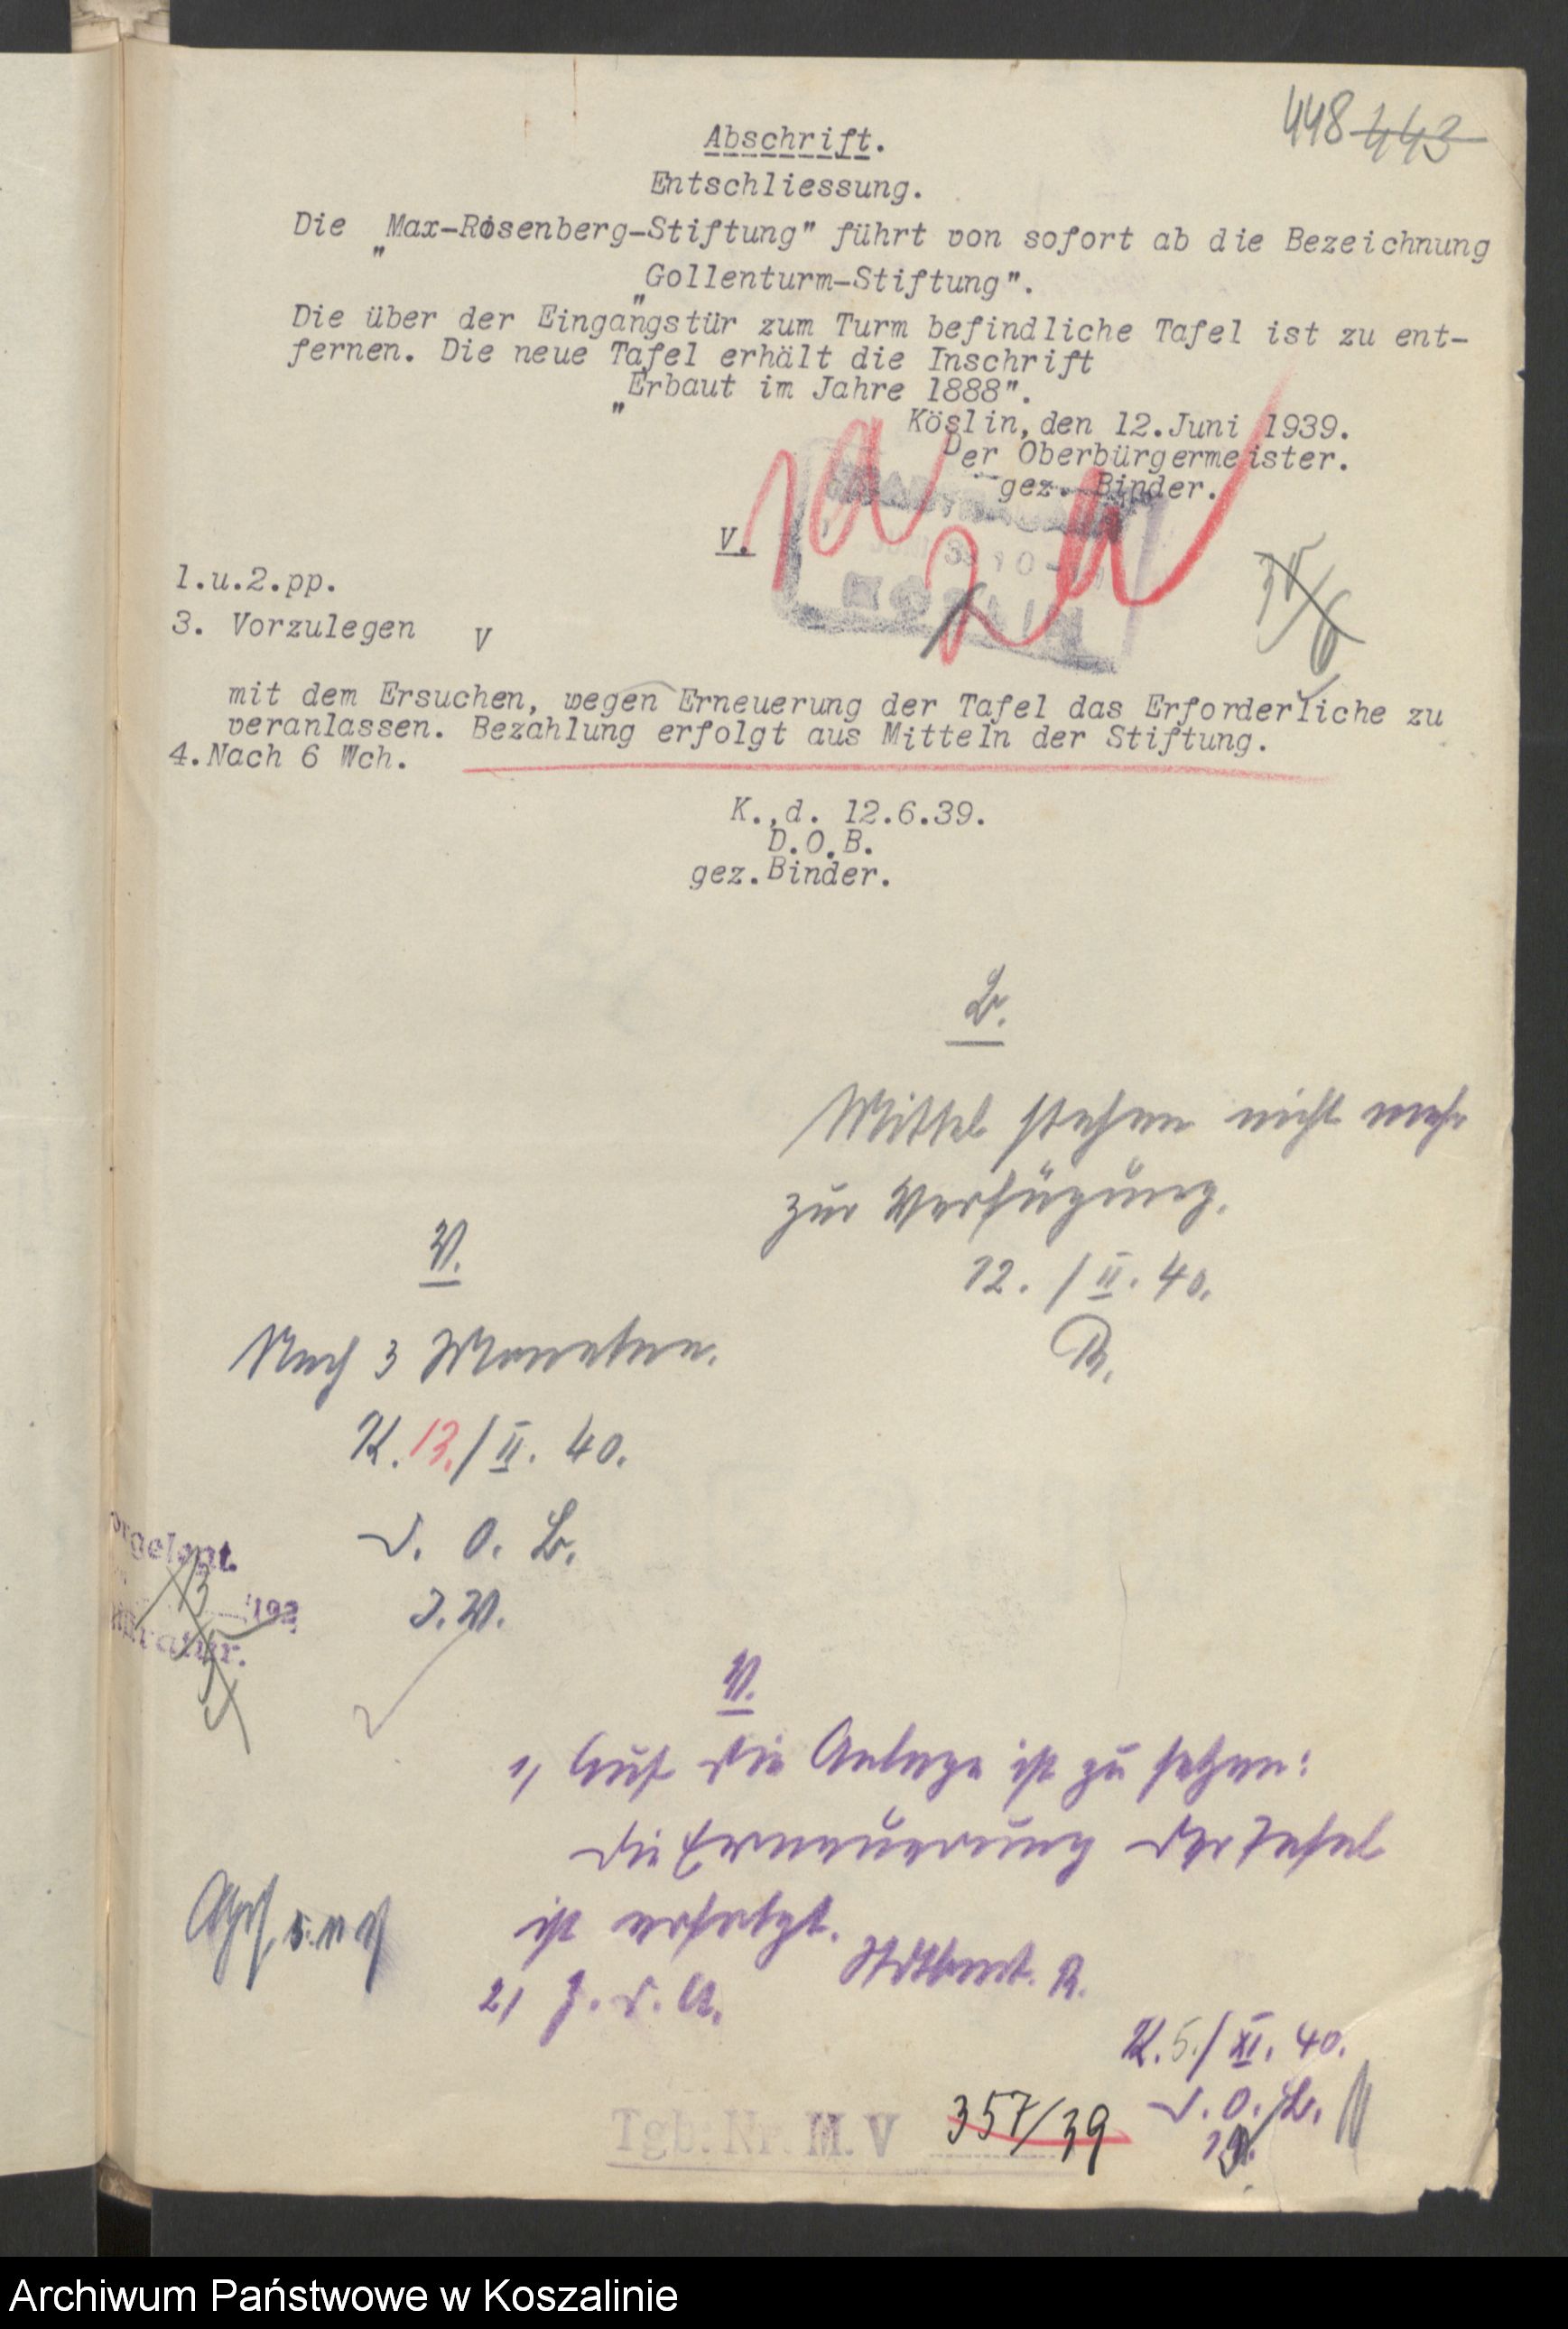 448 443
Abschrift.
Entschliessung.
Die „Max-Rosenberg-Stiftung" führt von sofort ab die Bezeichnung
„Gollenturm-Stiftung".
Die über der Eingangstür zum Turm befindliche Tafel ist zu ent-
fernen. Die neue Tafel erhält die Inschrift
„Erbaut im Jahre 1888".
Köslin, den 12.Juni 1939.
Der Oberbürgermeister.
gez. Binder.
V.
1.u.2.pp.
3. Vorzulegen V
mit dem Ersuchen, wegen Erneuerung der Tafel das Erforderliche zu
veranlassen. Bezahlung erfolgt aus Mitteln der Stiftung.
4.Nach 6 Wch.
K.,d. 12.6.39.
D.O.B.
gez.Binder.
B.
Mittel stehen nicht mehr
zur Verfügung.
12./II.40.
R.
V.
Nach 3 Monaten.
K.13./II.40.
D. O. B.
I.V.
V.
1, Auf die Anlage ist zu setzen:
Die Erneuerung der Tafel
ist erfolgt.
Stdtbaut. R.
2, Z. d. A.
K.5./XI.40.
D.O.B.
Tgb:Nr. M.V 357/39
Archiwum Państwowe w Koszalinie